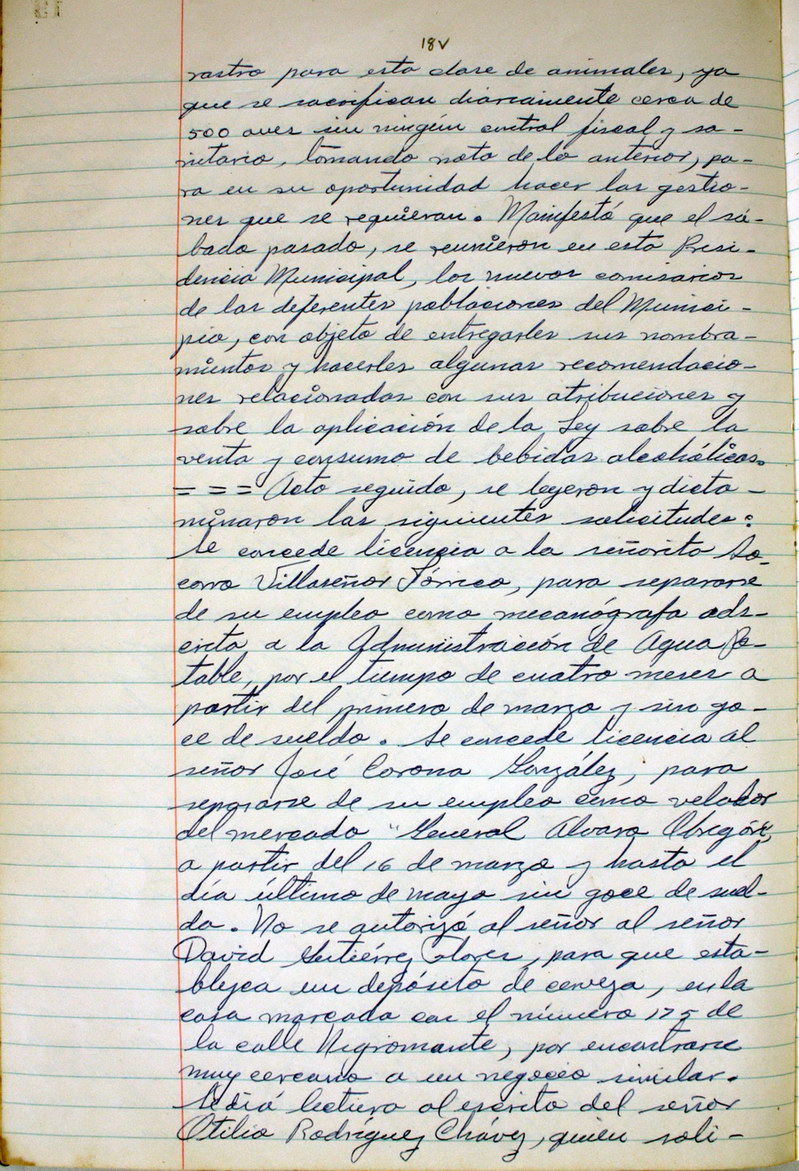 18v
rastro para esta clase de animales, ya
que se sacrifican diariamente cerca de
500 aves sin ningún control fiscal y sa-
nitario, tomando nota de lo anterior, pa-
ra en su oportunidad hacer las gestio-
nes que se requieran. Manifestó que el sá-
bado pasado, se reunieron en esta Presi-
dencia Municipal, los nuevos comisarios
de las diferentes poblaciones del Munici-
pio, con objeto de entregarles sus nombra-
mientos y hacerles algunas recomendacio-
nes relacionadas con sus atribuciones y
sobre la aplicación de la Ley sobre la
venta y consumo de bebidas alcohólicas.
= = = Acto seguido, se leyeron y dicta-
minaron las siguientes solicitudes:
Se concede licencia a la señorita So-
corro Villaseñor Tórrico, para separarse
de su empleo como mecanógrafa ads-
crita, a la Administración de Agua Po-
table, por el tiempo de cuatro meses a
partir del primero de marzo y sin go-
ce de sueldo. Se concede licencia al
señor José Corona González, para
separarse de su empleo como velador
del mercado "General Alvaro Obregón",
a partir del 16 de marzo y hasta el
día último de mayo sin goce de suel-
do. No se autorizó al señor al señor
David Gutiérrez Flores, para que esta-
blezca un depósito de cerveza, en la
casa marcada con el número 175 de
la calle Nigromante, por encontrarse
muy cercano a un negocio similar.
Se dió lectura al escrito del señor
Otilio Rodríguez Chávez, quien soli-